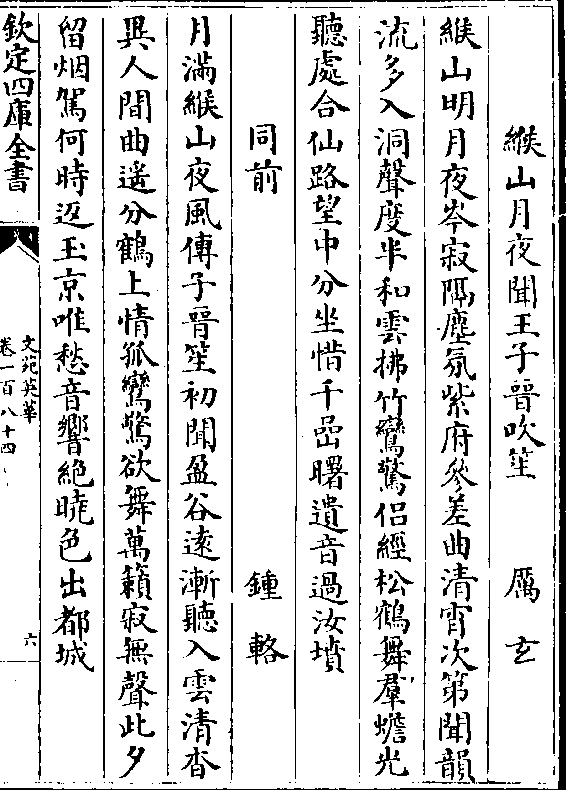 緱山月夜聞王子晉吹笙　厲玄
緱山明月夜岑寂隔塵氛紫府參差曲清宵次第聞韻
流多入洞聲度半和雲拂竹鸞驚侣經松鶴舞羣蟾光
聽處合仙路望中分坐惜千嵒曙遺音過汝墳
同前　鍾輅
月滿緱山夜風傳子晉笙初聞盈谷遠漸聽入雲清杳
異人間曲遙分鶴上情孤鸞驚欲舞萬籟寂無聲此夕
留烟駕何時返玉京唯愁音響絶曉色出都城
欽定四庫全書
文苑英華
卷一百八十四
六